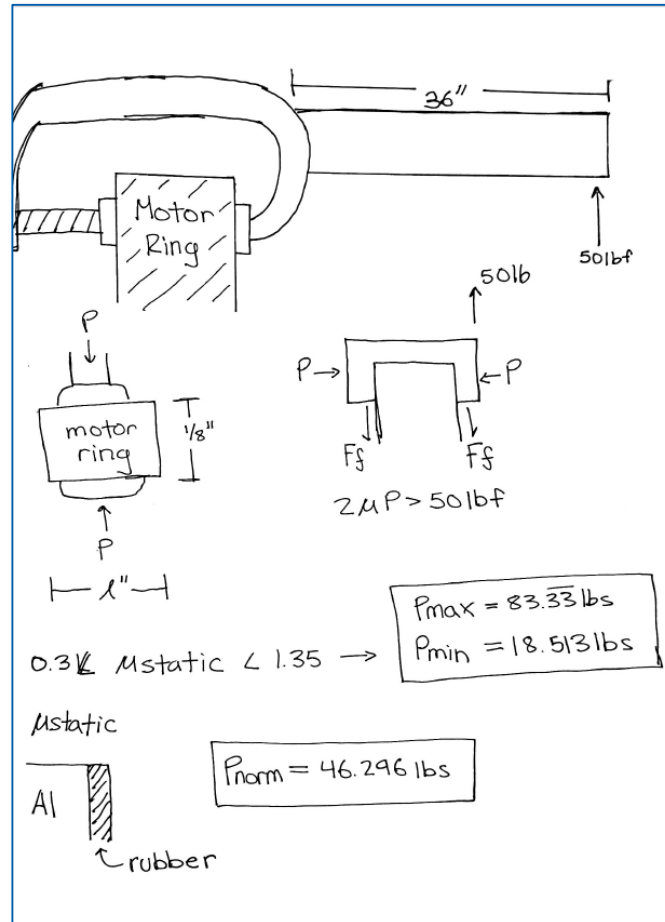 36"
Motor
Ring
50lbf
50lb
P
P→ ←P
motor
ring
1/8"
Ff Ff
2μP>50lbf
P
1"
0.3< μstatic < 1.35 →
Pmax = 83.33 lbs
Pmin = 18.513 lbs
μstatic
Pnorm = 46.296 lbs
Al
rubber